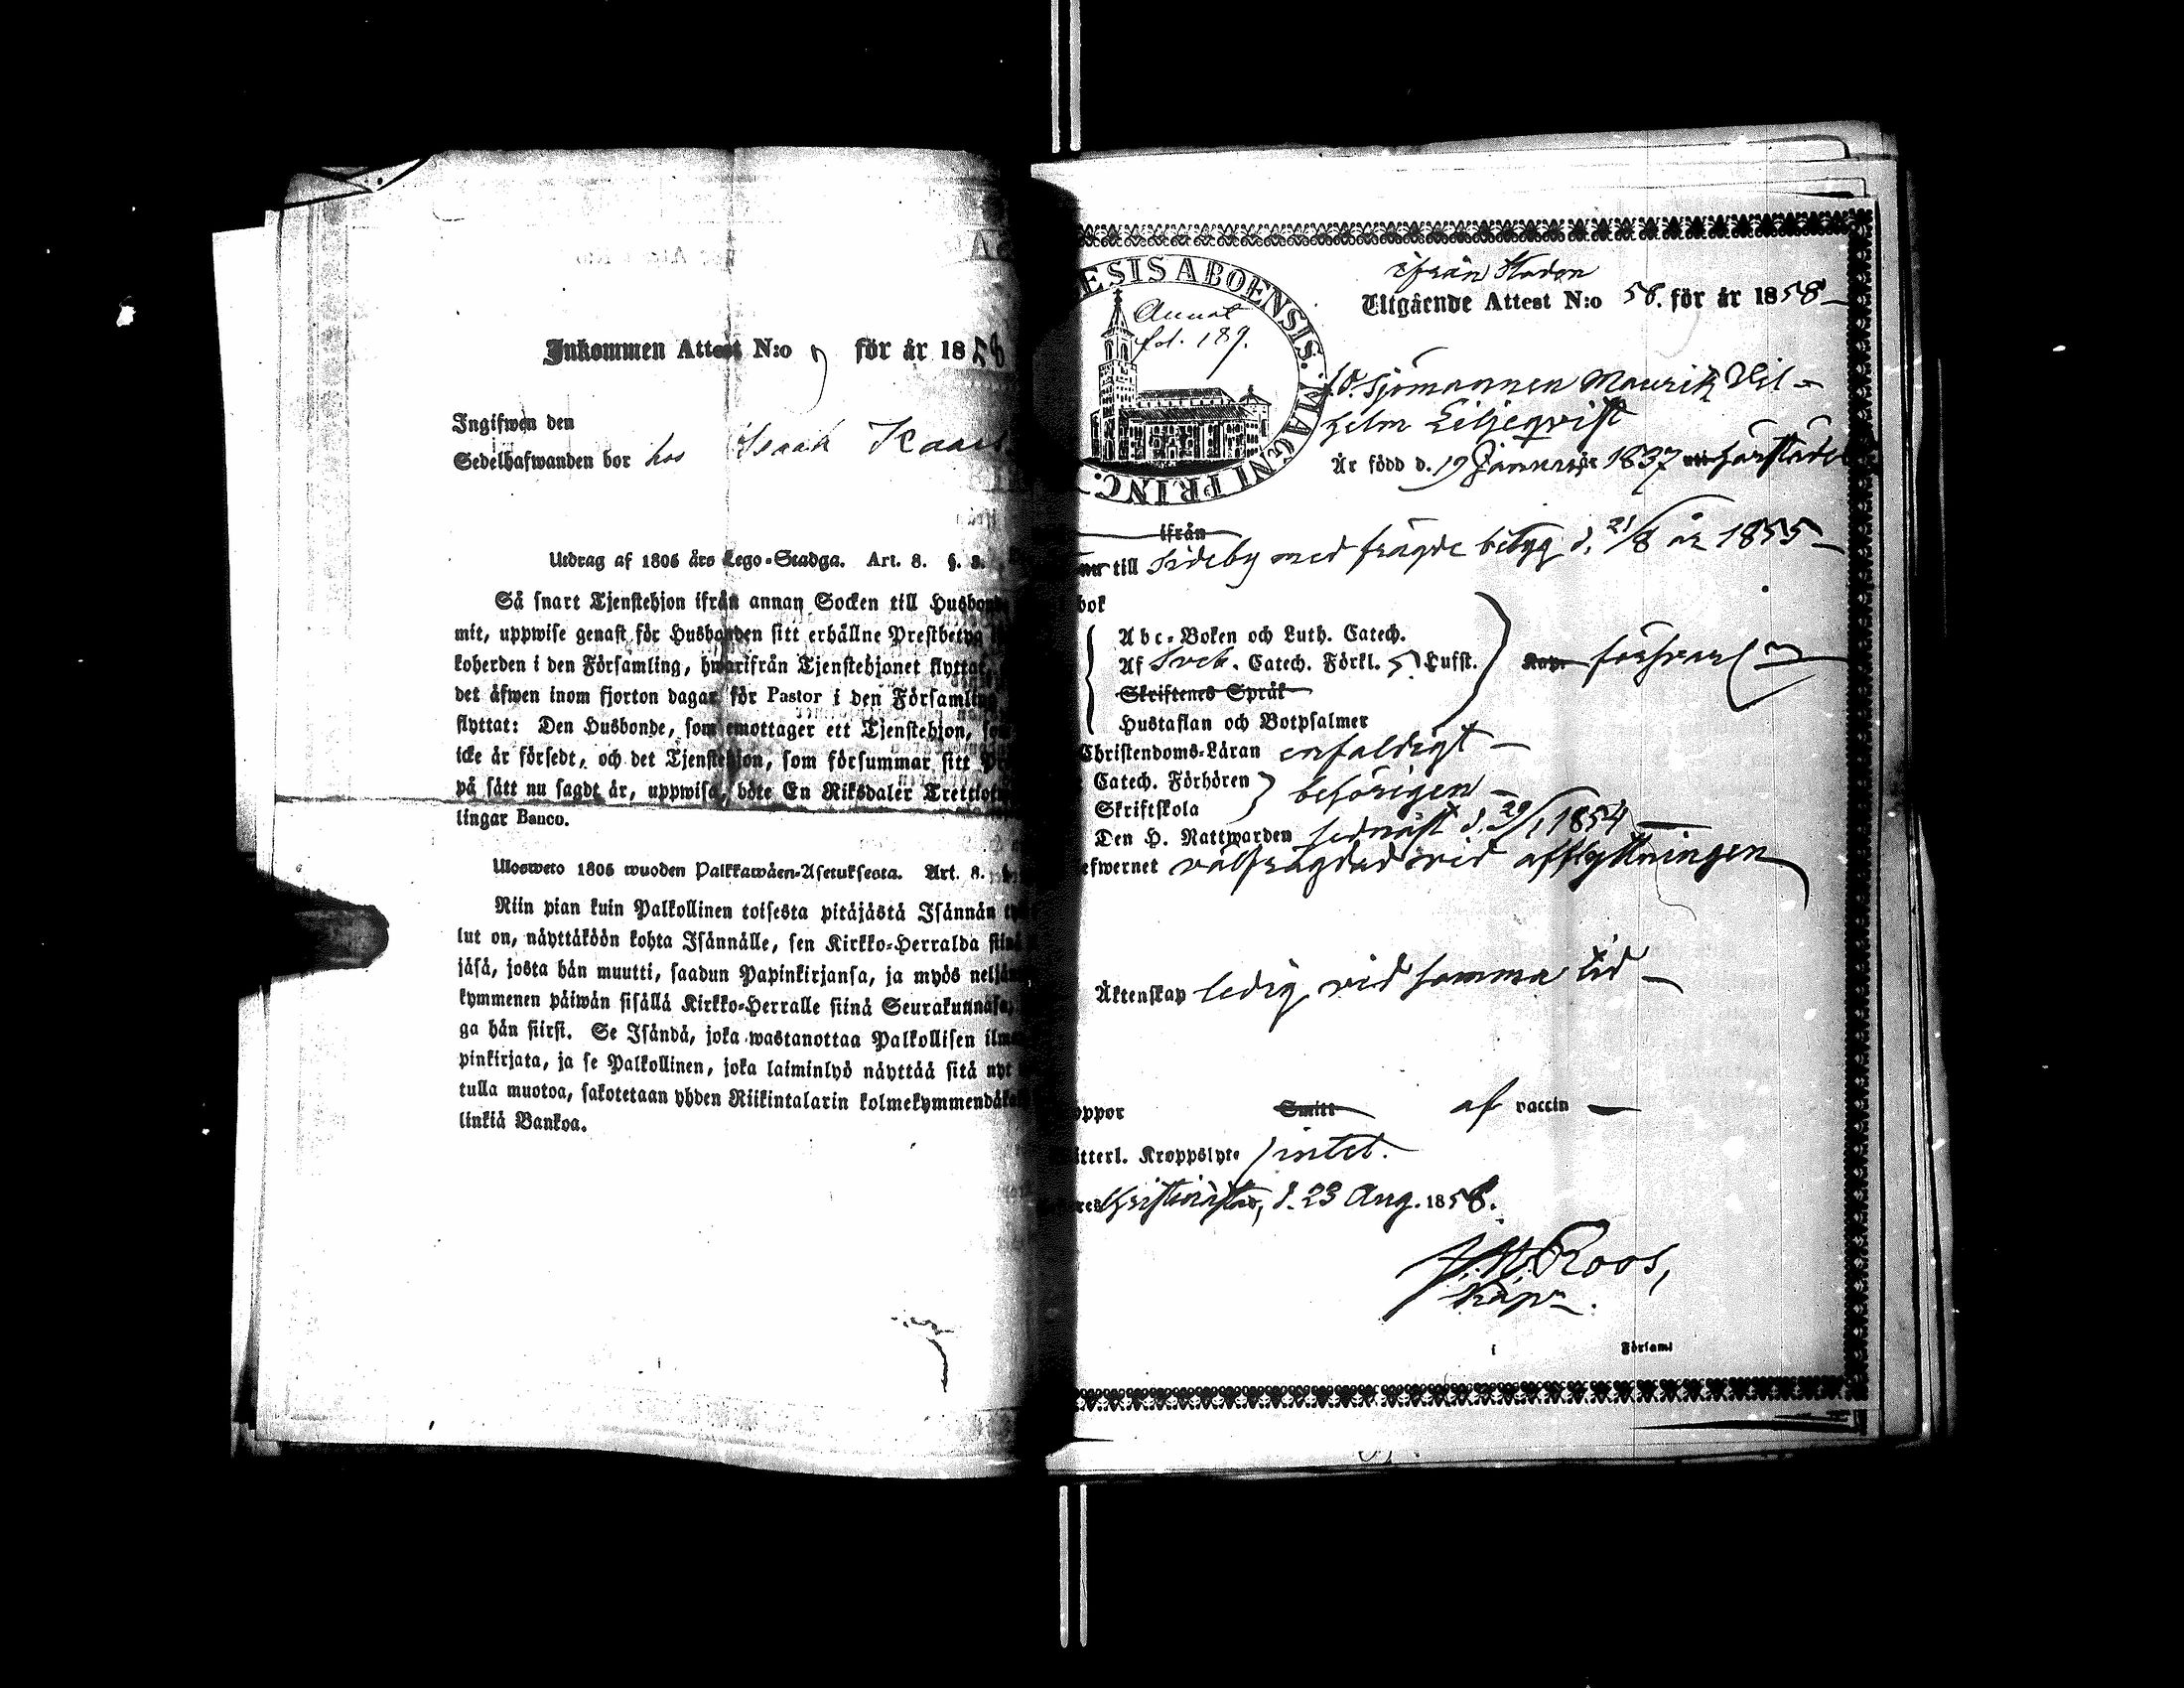 Inkommen Attest N:o 9 för år 1858
Ingifwen den
Sedelhafwanden bor hos Isaak
Utdrag af 1805 års Lego-Stadga. Art. 8. §. 3.
Så snart Tjenstehjon ifrån annan Socken till Husbonde
mit, uppwise genast för Husbonden sitt erhållne Prestbetyg
koherden i den Församling, hwarifrån Tjenstehjonet flyttat,
det äfwen inom fjorton dagar för Pastor i den Församling
flyttat: Den Husbonde, som emottager ett Tjenstehjon, som
icke är försedt, och det Tjenstehjon, som försummar sitt
på sätt nu sagdt är, uppwisa, böte En Riksdaler Trettiotw
lingar Banco.
Ulosweto 1805 wuoden Palkkawäen-Asetuksesta. Art. 8.
Niin pian kuin Palkollinen toisesta pitäjästä Isännän
lut on, näyttäköön kohta Isännälle, sen Kirkko-Herralda siinä
jäsä, josta hän muutti, saadun Papinkirjansa, ja myös neljän
kymmenen päiwän sisällä Kirkko-Herralle siinä Seurakunnasa,
ga hän siirsi. Se Isändä, joka wastanottaa Palkollisen ilman
pinkirjata, ja se Palkollinen, joka laiminlyö näyttää sitä nyt
tulla muotoa, sakotetaan yhden Riikintalarin kolmekymmendäka
linkiä Bankoa.
ESIS ABOENSIS. MAGNI PRINC.
Annot
fol. 189.
ifrån Staden
Utgående Attest N:o 58. för år 1858
f.d. Sjömannen Maurik Wil-
helm Liljeqvist
Är född d. 19 Januarii år 1837 härstädes
ifrån
till Sideby med frägde betyg d. 21/8 år 1855
bok
Abc-Boken och Luth. Catech.
Af Sveb. Catech. Förkl. 5 Hufst.
Skriftenes Språk
Hustaflan och Botpsalmer
försvarl
Christendoms-Läran enfaldigt
Catech. Förhören
Skriftskola
behörigen
Den H. Nattwarden sednast d. 29/1 1854
efwernet välfrägdad vid afflyttningen
Äktenskap ledig vid samma tid
oppor Smitt af vaccin
itterl. Kroppslyte intet.
Christinestad, d. 23 Aug. 1858.
Roos,
Kapn.
i Församl